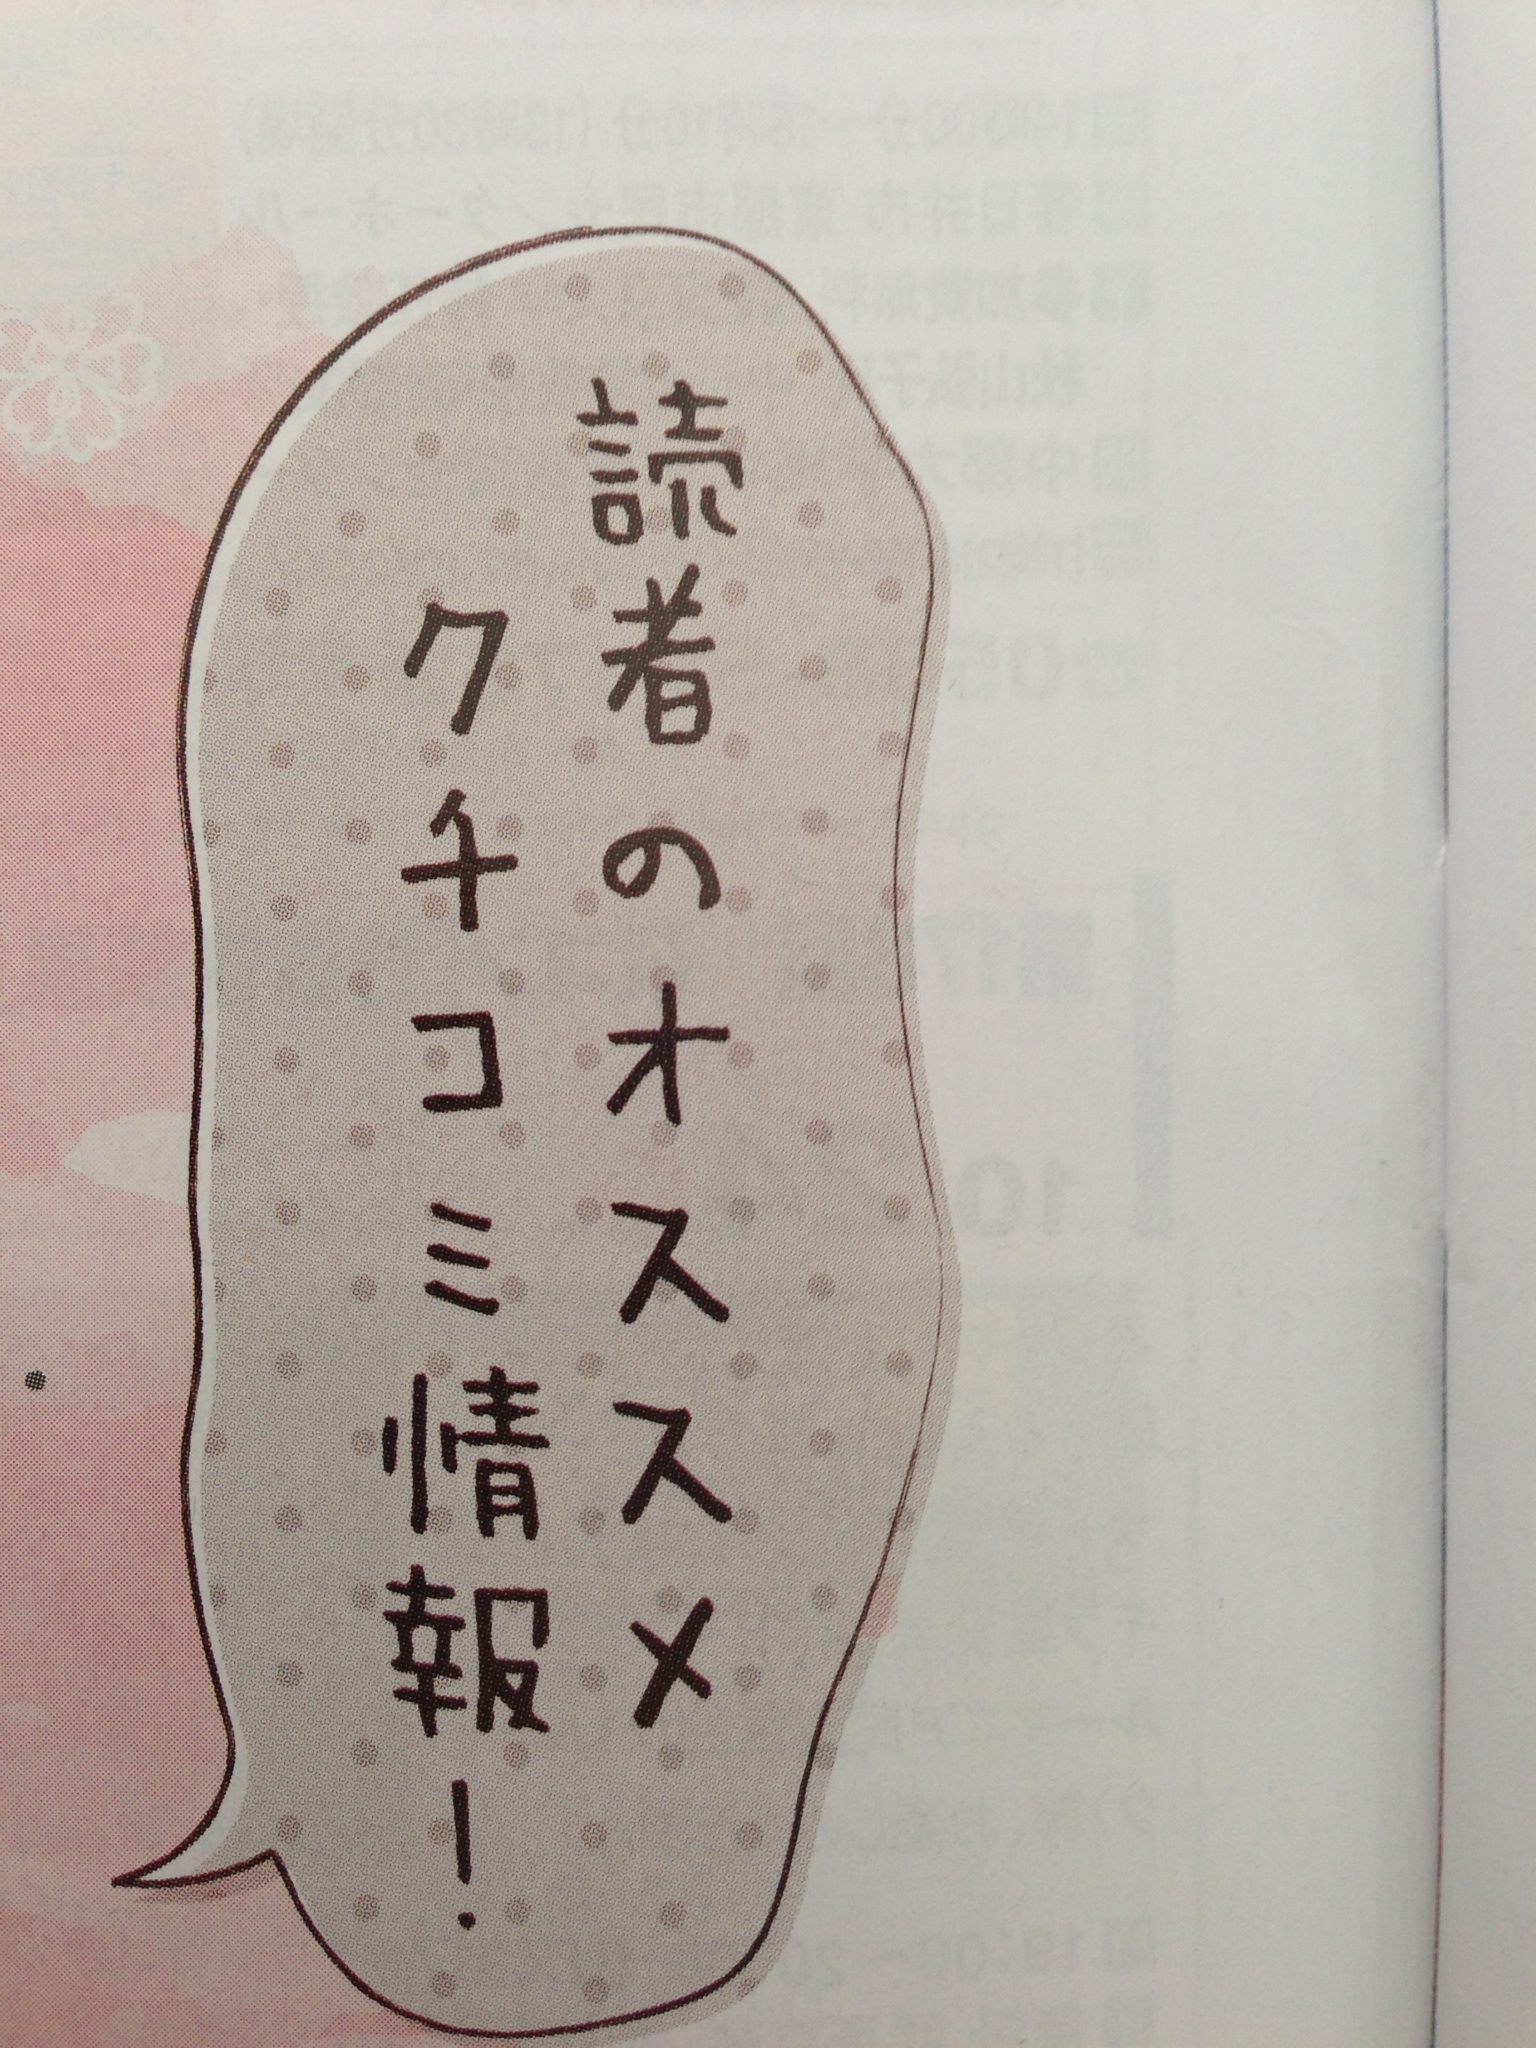 読者のオススメ
クチコミ情報!